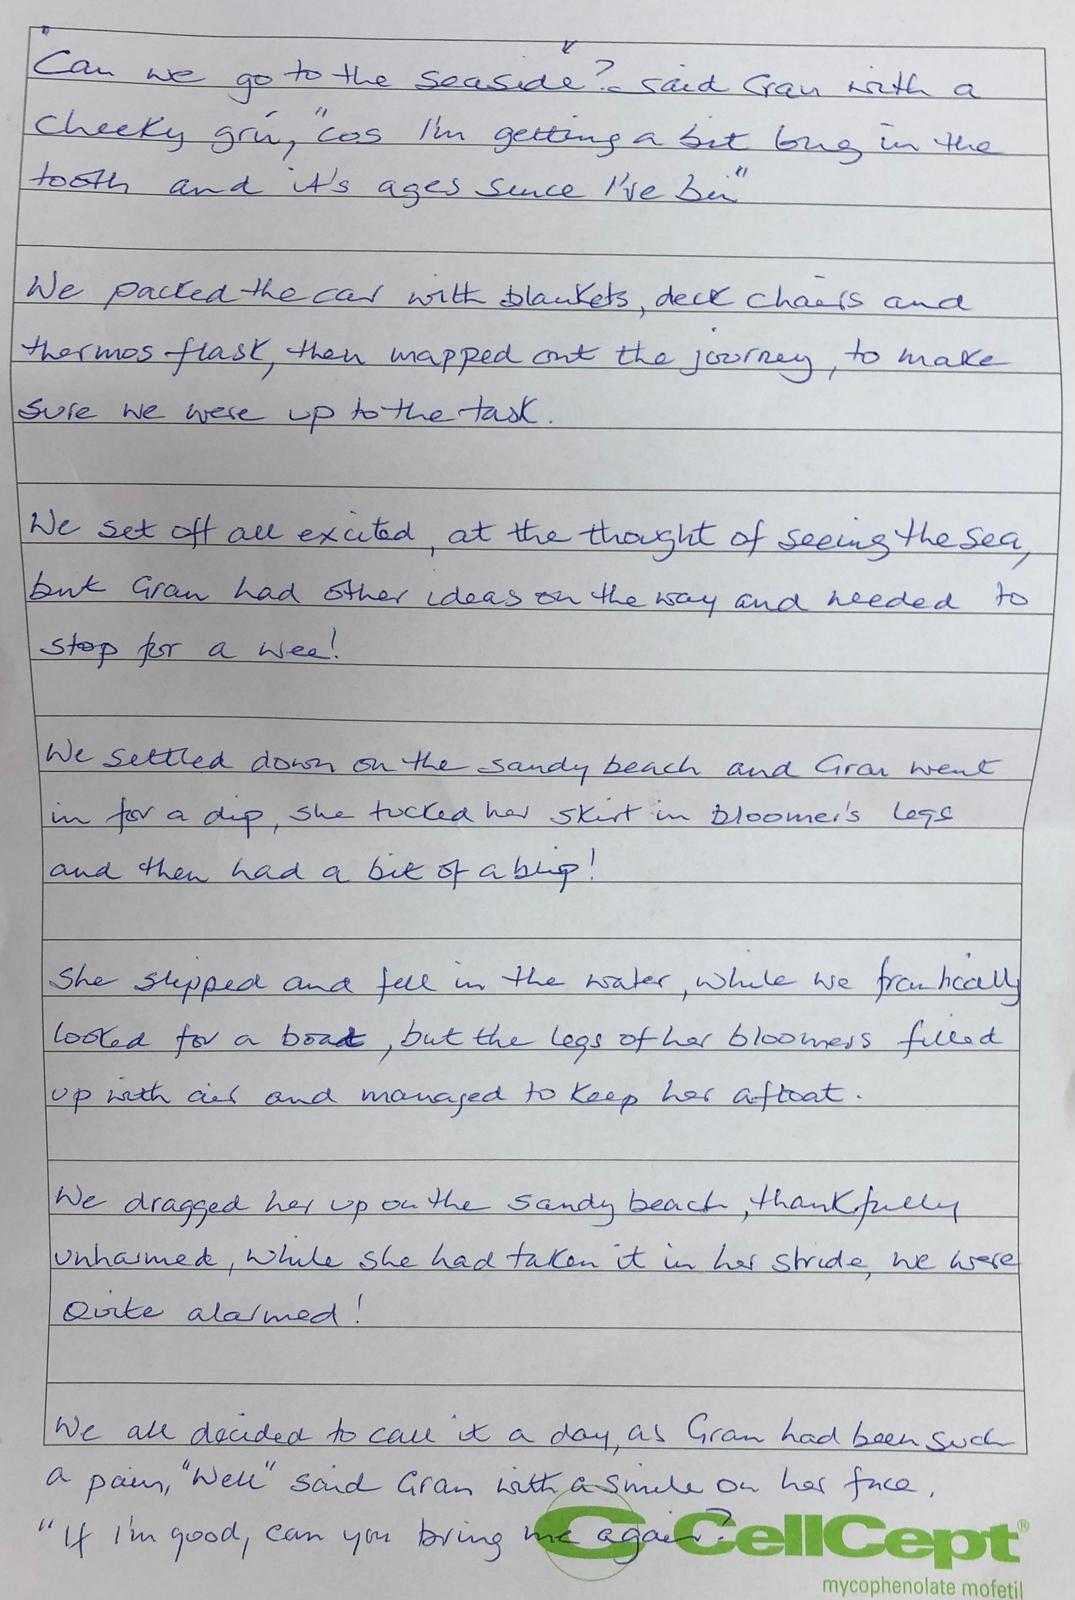 "Can we go to the seaside"? said Gran with a
cheeky grin, "cos I'm getting a bit long in the
tooth and it's ages since I've bin"
We packed the car with blankets, deck chairs and
thermos flask, then mapped out the journey, to make
sure we were up to the task.
We set off all excited, at the thought of seeing the sea,
but Gran had other ideas on the way and needed to
stop for a wee!
We settled down on the sandy beach and Gran went
in for a dip, she tucked her skirt in bloomer's legs
and then had a bit of a blip!
She slipped and fell in the water, while we frantically
looked for a boat, but the legs of her bloomers filled
up with air and managed to keep her afloat.
We dragged her up on the sandy beach, thankfully
unharmed, while she had taken it in her stride, we were
quite alarmed!
We all decided to call it a day, as Gran had been such
a pain, "Well" said Gran with a smile on her face,
"If I'm good, can you bring me again?
CellCept®
mycophenolate mofetil